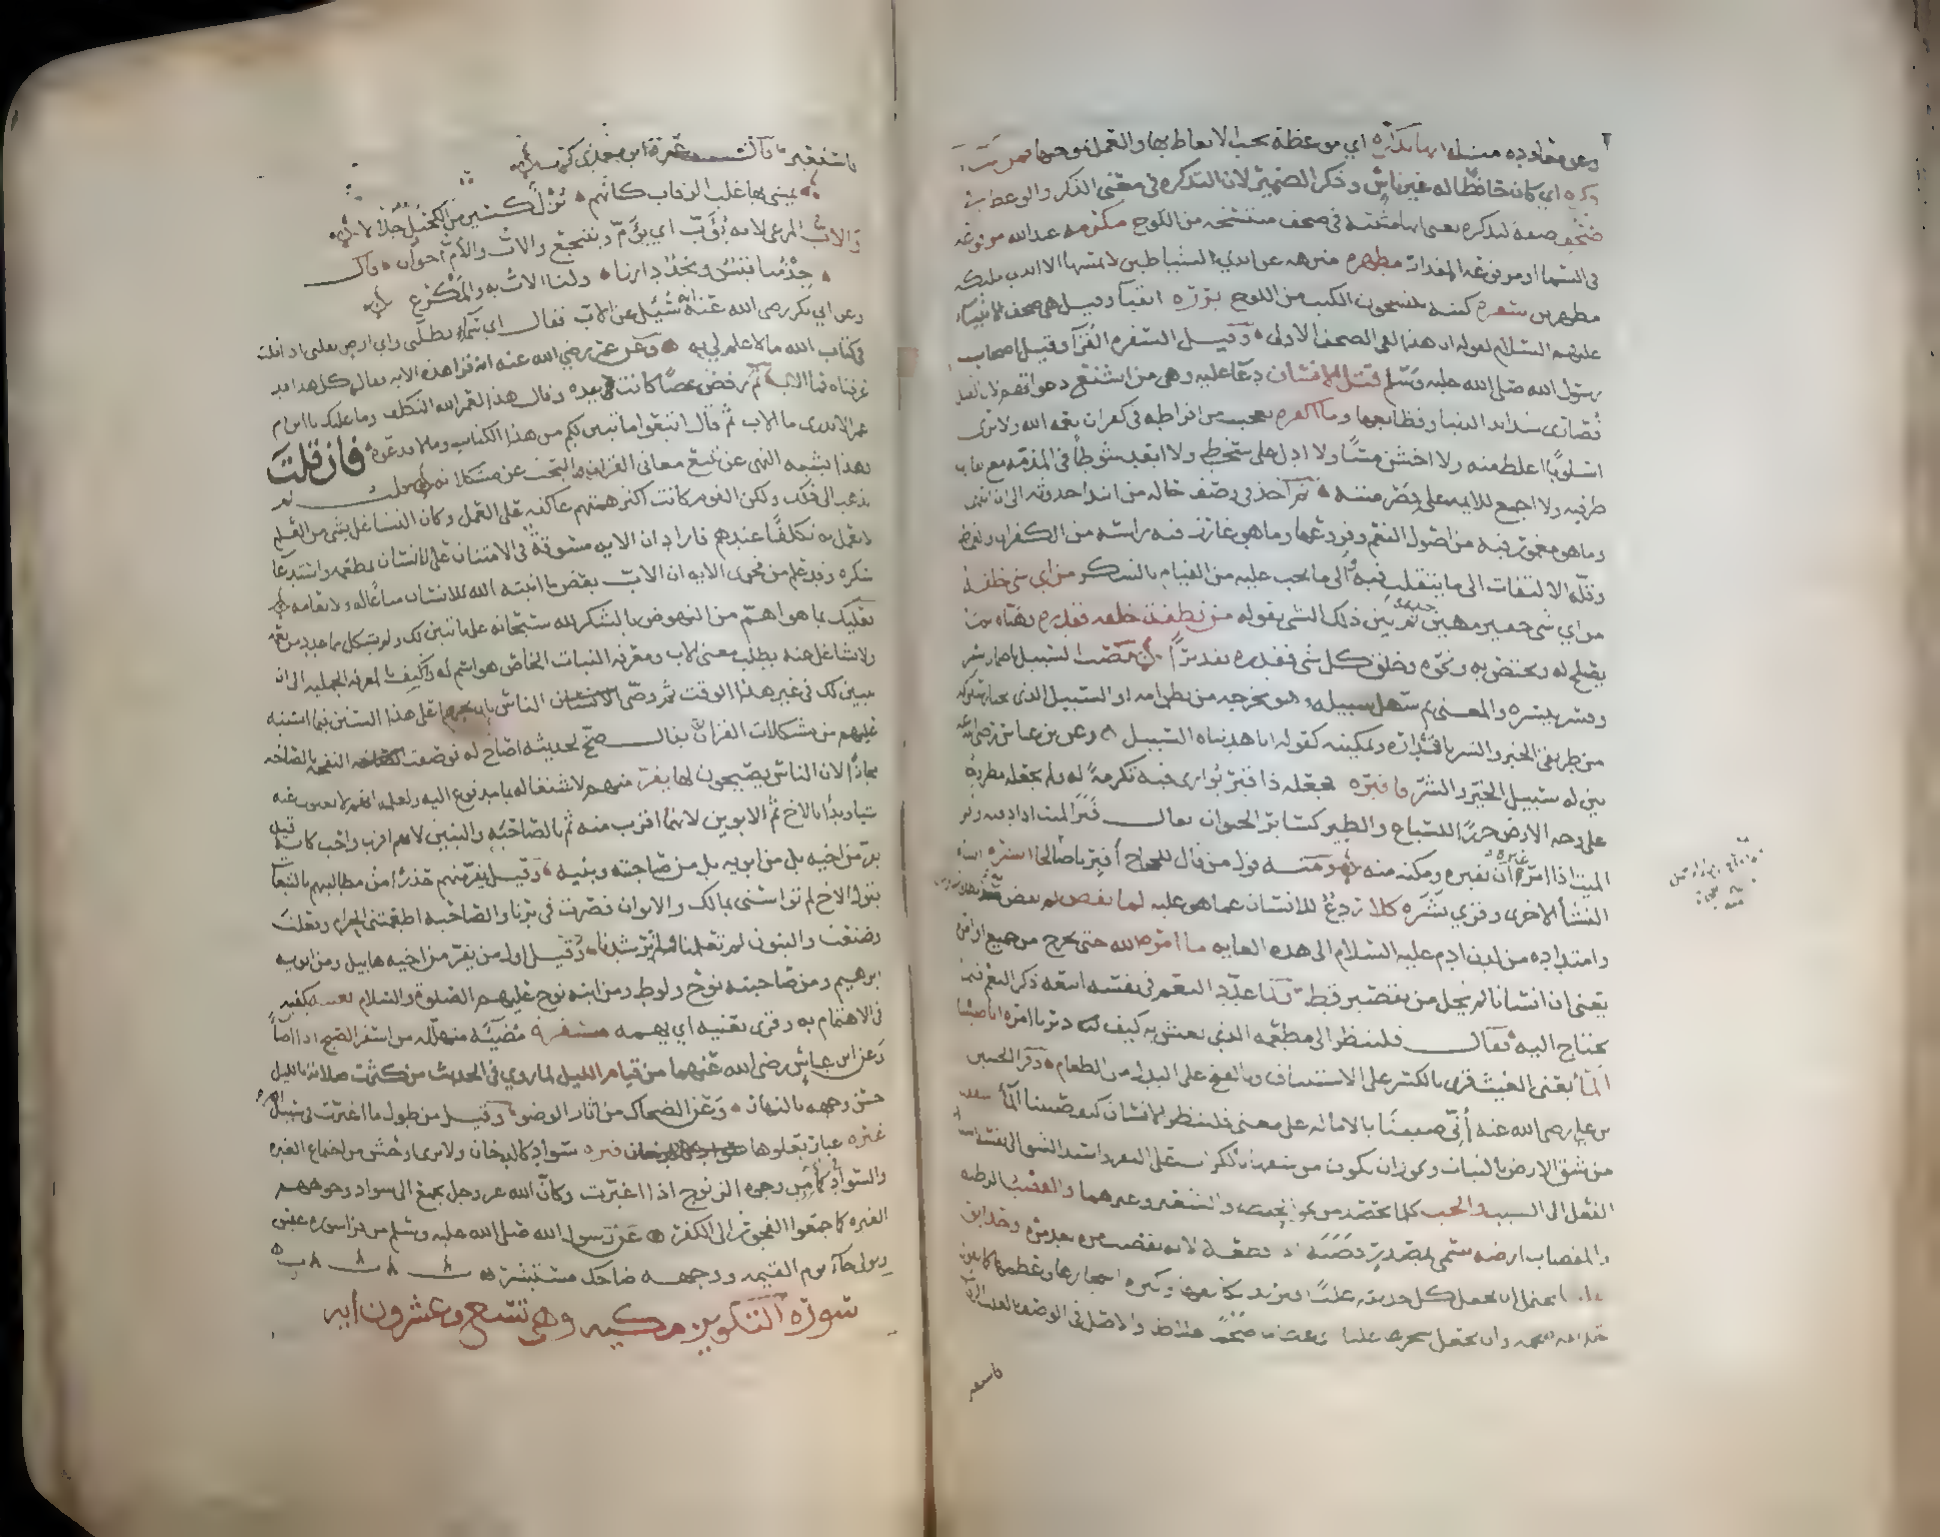 وعن معاودة مثله انها تذكرة اي موعظة يجب الاتعاظ بها والعمل بموجبها فمن شاء
ذكره اي كان حافظا له غير ناس وذكر الضمير لان التذكرة في معنى الذكر والوعظ في
صحف صفة لتذكرة يعني انها مثبتة في صحف منتسخة من اللوح مكرمة عند الله مرفوعة
في السما او مرفوعة المقدار مطهرة منزهة عن ايدي الشياطين لا يمسها الا ايدي ملائكة
مطهرين سفرة كتبة ينتسخون الكتب من اللوح بررة اتقيا وقيل هي صحف الانبياء
عليهم السلام لقوله ان هذا لفي الصحف الاولى وقيل السفرة القرآ وقيل اصحاب
رسول الله صلى الله عليه وسلم قتل الانسان دعا عليه وهي من اشنع دعواتهم لان القتل
قصارى شدايد الدنيا وفظايعها وما اكفره تعجب من افراطه في كفران نعمة الله ولا ترى
اسلوبا اغلظ منه ولا اخشن مسا ولا ادل على سخط ولا ابعد شوطا في المذمة مع تقارب
طرفيه ولا اجمع للايمة على قصر متنه ثم اخذ في وصف حاله من ابتدا حدوثه الى ان انتهى
وما هو مغمور فيه من اصول النعم وفروعها وما هو غارز فيه راسه من الكفران والغمط
وقلة الالتفات الى ما يتقلب فيه والى ما يجب عليه من القيام بالشكر من اي شي خلقه
من اي شي حقير مهين خلقه ثم بين ذلك الشي بقوله من نطفة خلقه فقدره فهياه لما
يصلح له ويختص به ونحوه وخلق كل شي فقدره تقديرا نصب السبيل باضمار يسر
وفسره بيسره والمعنى ثم سهل سبيله وهو مخرجه من بطن امه او السبيل الذي يختار سلوكه
من طريقي الخير والشر باقداره وتمكينه كقوله انا هديناه السبيل وعن ابن عباس رضي الله عنه
بين له سبيل الخير والشر فاقبره فجعله ذا قبر يوارى فيه تكرمة له ولم يجعله مطروحا
على وجه الارض جزرا للسباع والطير كسائر الحيوان يقال قبر الميت اذا دفنه واقبر
الميت اذا امر غيره ان يقبره ومكنه منه ومنه قول من قال للحجاج اقبرنا صالحا انشره انشاه
النشأة الاخرى وقرئ نشره كلا ردع للانسان عما هو عليه لما يقض لم يقض بعد
وامتداده من لدن ادم عليه السلام الى هذه الغاية ما امره الله حتى يخرج من جميع اوامره
يعني ان انسانا لم يخل من تقصير قط ولما عدد النعم في نفسه اتبعه ذكر النعم فيما
يحتاج اليه فقال فلينظر الى طعامه الى مطعمه الذي يعيش به كيف دبرنا امره انا صببنا
الما يعني الغيث قرئ بالكسر على الاستيناف وبالفتح على البدل من الطعام وقرا الحسين
بن علي رضي الله عنه أنّى صببنا بالامالة على معنى فلينظر الانسان كيف صببنا الما شققنا
من شق الارض بالنبات ويجوز ان يكون من شقها بالكراب على البقر واسند الشق الى نفسه اسناد
الفعل الى السبب والحب كل ما حصد من نحو الحنطة والشعير وغيرهما والقضب الرطبة
والمقضاب ارضه سمي بمصدر قضبه اذا قطعه لانه يقضب مرة بعد مرة وحدايق
غلبا يحتمل ان يجعل كل حديقة غلبا فيريد تكاثفها وكثرة اشجارها وعظمها كما تقول
حديقة ضخمة وان يجعل شجرها غلبا اي عظاما غلاظا والاصل في الوصف بالغلب الرقاب
فاستعير
فاستعير قال عمرو ابن معدي كرب
يمشي بها غلب الرقاب كانهم بزل كسين من الكحيل جلالا
والاب المرعى لانه يؤب اي يؤم وينتجع والاب والام اخوان قال
جذمنا قيس ونجد دارنا ولنا الاب به والمكرع
وعن ابي بكر رضي الله عنه انه سئل عن الاب فقال اي سماء تظلني واي ارض تقلني اذا قلت
في كتاب الله ما لا علم لي به وعن عمر رضي الله عنه انه قرا هذه الاية فقال كل هذا قد
عرفناه فما الاب ثم رفض عصا كانت بيده وقال هذا لعمر الله التكلف وما عليك يا ابن ام
عمر الا تدري ما الاب ثم قال اتبعوا ما تبين لكم من هذا الكتاب وما لا فدعوه فان قلت
فهذا يشبه النهي عن تتبع معاني القران والبحث عن مشكلاته قلت لم
يذهب الى ذلك ولكن القوم كانت اكبر همتهم عاكفة على العمل وكان التشاغل بشي من العلم
لا يعمل به تكلفا عندهم فاراد ان الاية مسوقة في الامتنان على الانسان بمطعمه واستدعا
شكره وقد علم من فحوى الاية ان الاب بعض ما انبته الله للانسان متاعا له ولانعامه
فعليك بما هو اهم من النهوض بالشكر لله سبحانه على ما تبين لك ولم يشكل مما عدد من نعمه
ولا تشاغل عنه بطلب معنى الاب ومعرفة النبات الخاص هو اسم له واكتف بالمعرفة الجملية الى ان
يتبين لك في غير هذا الوقت ثم وصى الناس بان يجروا على هذا السنن فيما اشبه
عليهم من مشكلات القران يقال صخ لحديثه اصاخ له فوصفت النفخة بالصاخة
مجازا لان الناس يصيخون لها يفر منهم لاشتغاله بما هو مدفوع اليه ولعلمه انهم لا يغنون عنه
شيا وبدأ بالاخ ثم الابوين لانهما اقرب منه ثم بالصاحبة والبنين لانهم اقرب واحب كانه قيل
يفر من اخيه بل من ابويه بل من صاحبته وبنيه وقيل يفر منهم حذرا من مطالبتهم بالتبعات
يقول الاخ لم تواسني بمالك والابوان قصرت في برنا والصاحبة اطعمتني الحرام وفعلت
وصنعت والبنون لم تعلمنا ولم ترشدنا وقيل اول من يفر من اخيه هابيل ومن ابويه
ابرهيم ومن صاحبته نوح ولوط ومن ابنه نوح عليهم الصلوة والسلام يغنيه يكفيه
في الاهتمام به وقرئ يعنيه اي يهمه مسفرة مضيئة متهللة من اسفر الصبح اذا اضا
وعن ابن عباس رضي الله عنهما من قيام الليل لما روي في الحديث من كثرت صلاته بالليل
حسن وجهه بالنهار وعن الضحاك من اثار الوضو وقيل من طول ما اغبرت في سبيل الله
غبرة غبار يعلوها قترة سواد كالدخان ولا ترى اوحش من اجتماع الغبرة
والسواد كما ترى من وجوه الزنوج اذا اغبرت وكان الله عز وجل يجمع الى سواد وجوههم
الغبرة كما جمعوا الفجور الى الكفر عن رسول الله صلى الله عليه وسلم من قرا سورة عبس
وتولى جآء يوم القيمة ووجهه ضاحك مستبشر
سورة التكوير مكية وهي تسع وعشرون آية